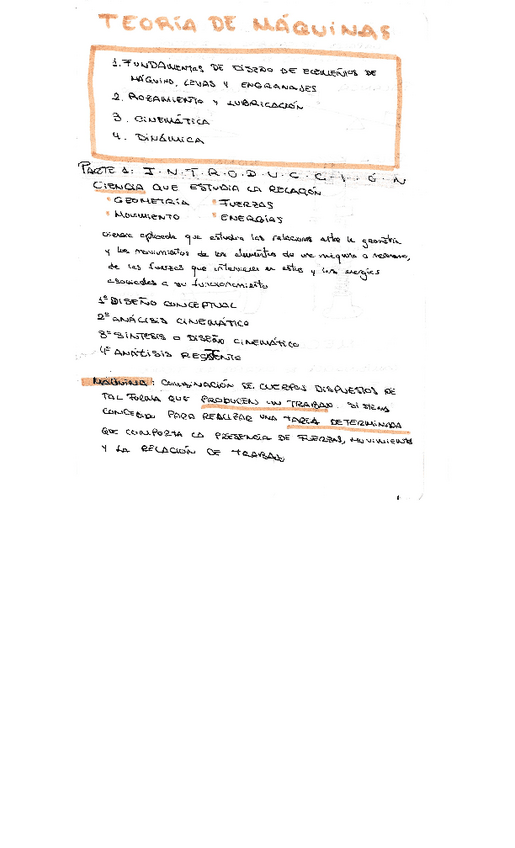 TEORÍA DE MÁQUINAS
1. FUNDAMENTOS DE DISEÑO DE ELEMENTOS DE
MÁQUINAS, LEVAS Y ENGRANAJES
2. ROZAMIENTO Y LUBRICACIÓN
3. CINEMÁTICA
4. DINÁMICA
PARTE 1: I·N·T·R·O·D·U·C·C·I·Ó·N
CIENCIA QUE ESTUDIA LA RELACIÓN
• GEOMETRÍA • FUERZAS
• MOVIMIENTO • ENERGÍAS
ciencia aplicada que estudia las relaciones entre la geometría
y los movimientos de los elementos de una máquina o mecanismo,
de las fuerzas que intervienen en estos y las energías
asociadas a su funcionamiento
1º DISEÑO CONCEPTUAL
2º ANÁLISIS CINEMÁTICO
3º SÍNTESIS O DISEÑO CINEMÁTICO
4º ANÁLISIS
MÁQUINA: COMBINACIÓN DE CUERPOS DISPUESTOS DE
TAL FORMA QUE PRODUCEN UN TRABAJO.
CONCEBIDO PARA REALIZAR UNA TAREA DETERMINADA
QUE COMPORTA LA PRESENCIA DE FUERZAS, MOVIMIENTO
Y LA RELACIÓN DE TRABAJO